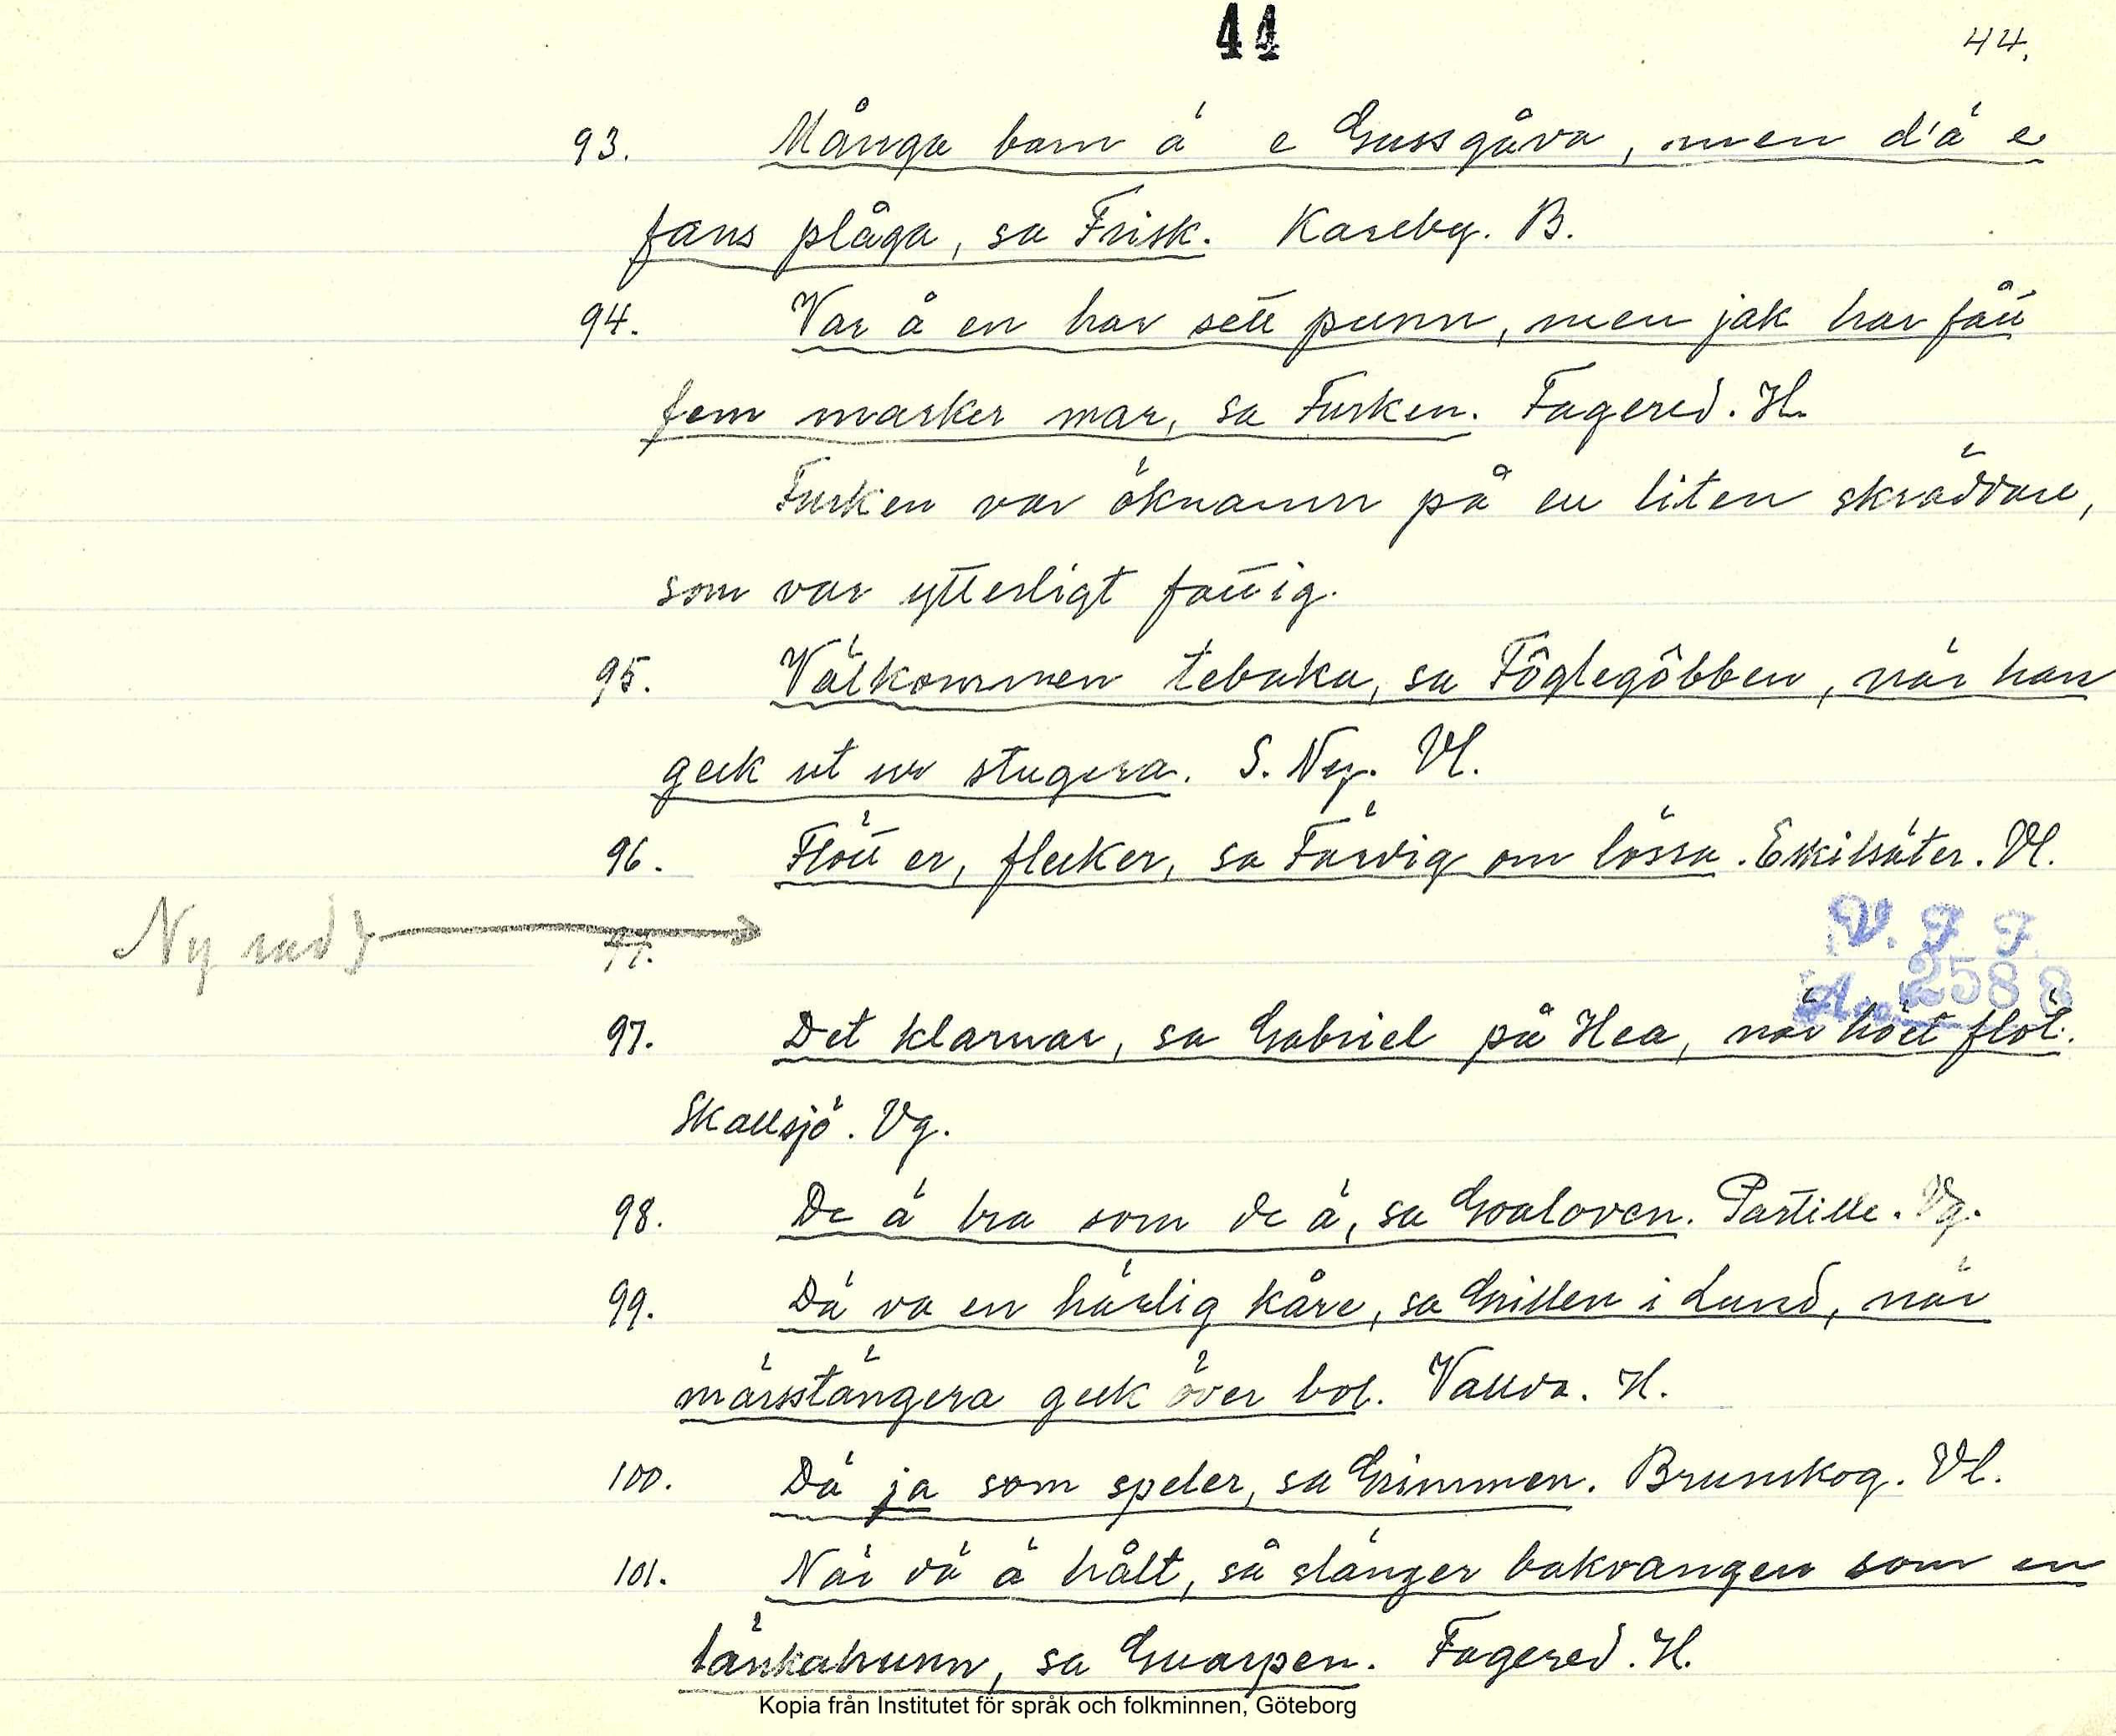 44
44.
93. Många barn ä e Gussgåva, men d'ä e
fans plåga, sa Frisk. Kareby. B.
94. Var å en har sett punn, men jak har fått
fem marker mar, sa Furken. Fagered. H.
Furken var öknamn på en liten skräddare,
som var ytterligt fattig.
95. Välkommen tebaka, sa Fôglegôbben, när han
geck ut ur stugera. S. Ny. Vl.
96. Flött er, flecker, sa Färdig om lössa. Eskilsäter. Vl.
Ny rad
97.
V. F F
Acc. 2588
97. Det klarnar, sa Gabriel på Hea, när höet flöt.
Skallsjö. Vg.
98. De ä bra som de ä, sa Goaloven. Partille. Vg.
99. Dä va en härlig kåre, sa Grillen i Lund, när
märsstängera geck över bol. Valda. H.
100. Dä ja som speler, sa Grimmen. Brunskog. Vl.
101. När dä ä hålt, så slänger bakvangen som en
länkahunn, sa Guarpen. Fagered. H.
Kopia från Institutet för språk och folkminnen, Göteborg